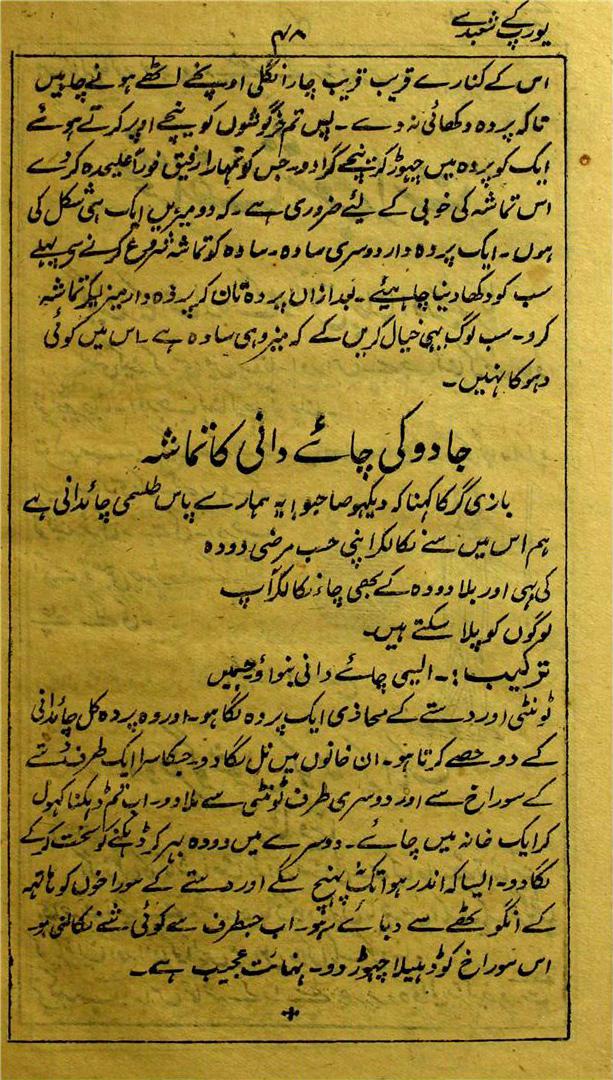 یورپ کے شعبدے
۴۸
اس کے کنارے قریب قریب چار انگلی اوپر کے اٹھے ہونے چاہیں
تاکہ پردہ دکھائی نہ دے۔ پس تم خرگوشوں کو نیچے اوپر کرتے ہوئے
ایک کو پردہ میں چھوڑ کر نیچے گرا دو۔ جس کو تمہارا رفیق فوراً علیحدہ کر دے
اس تماشہ کی خوبی کے لئے ضروری ہے۔ کہ دو میزیں ایک ہی شکل کی
ہوں۔ ایک پردہ دار دوسری سادہ۔ سادہ کو تماشہ شروع کرنے سے پہلے
سب کو دکھا دینا چاہیئے۔ بعد ازاں پردہ تان کر پردہ دار میز لیکر تماشہ
کرو۔ سب لوگ یہی خیال کریں گے کہ میز وہی سادہ ہے۔ اس میں کوئی
دہوکا نہیں۔
جادو کی چائے دانی کا تماشہ
بازی گر کا کہنا کہ دیکھو صاحبو! یہ ہمارے پاس طلسمی چائدانی ہے
ہم اس میں سے نکالکر اپنی حسب مرضی دودہ
کی بھی اور بلا دودہ کے بھی چاء نکالکر آپ
لوگوں کو پلا سکتے ہیں۔
ترکیب:۔ ایسی چائے دانی بنواؤ جسمیں
ٹونٹی اور دستے کے محاذی ایک پردہ لگا ہو۔ اور وہ پردہ کل چائدانی
کے دو حصے کرتا ہو۔ ان خانوں میں نل لگا دو۔ جسکا سرا ایک طرف دستے
کے سوراخ سے اور دوسری طرف ٹونٹی سے ملا دو۔ اب تم ڈہکنا کھول
کر ایک خانہ میں چائے۔ دوسرے میں دودہ بہر کر ڈہکنے کو سخت کر کے
لگا دو۔ ایسا کہ اندر ہوا تک نہ پہنچ سکے اور دستے کے سوراخوں کو ہاتھہ
کے انگوٹھے سے دبائے رہو۔ اب جسطرف سے کوئی شے نکالنی ہو
اس سوراخ کو ڈہیلا چھوڑ دو۔ نہائت عجیب ہے۔